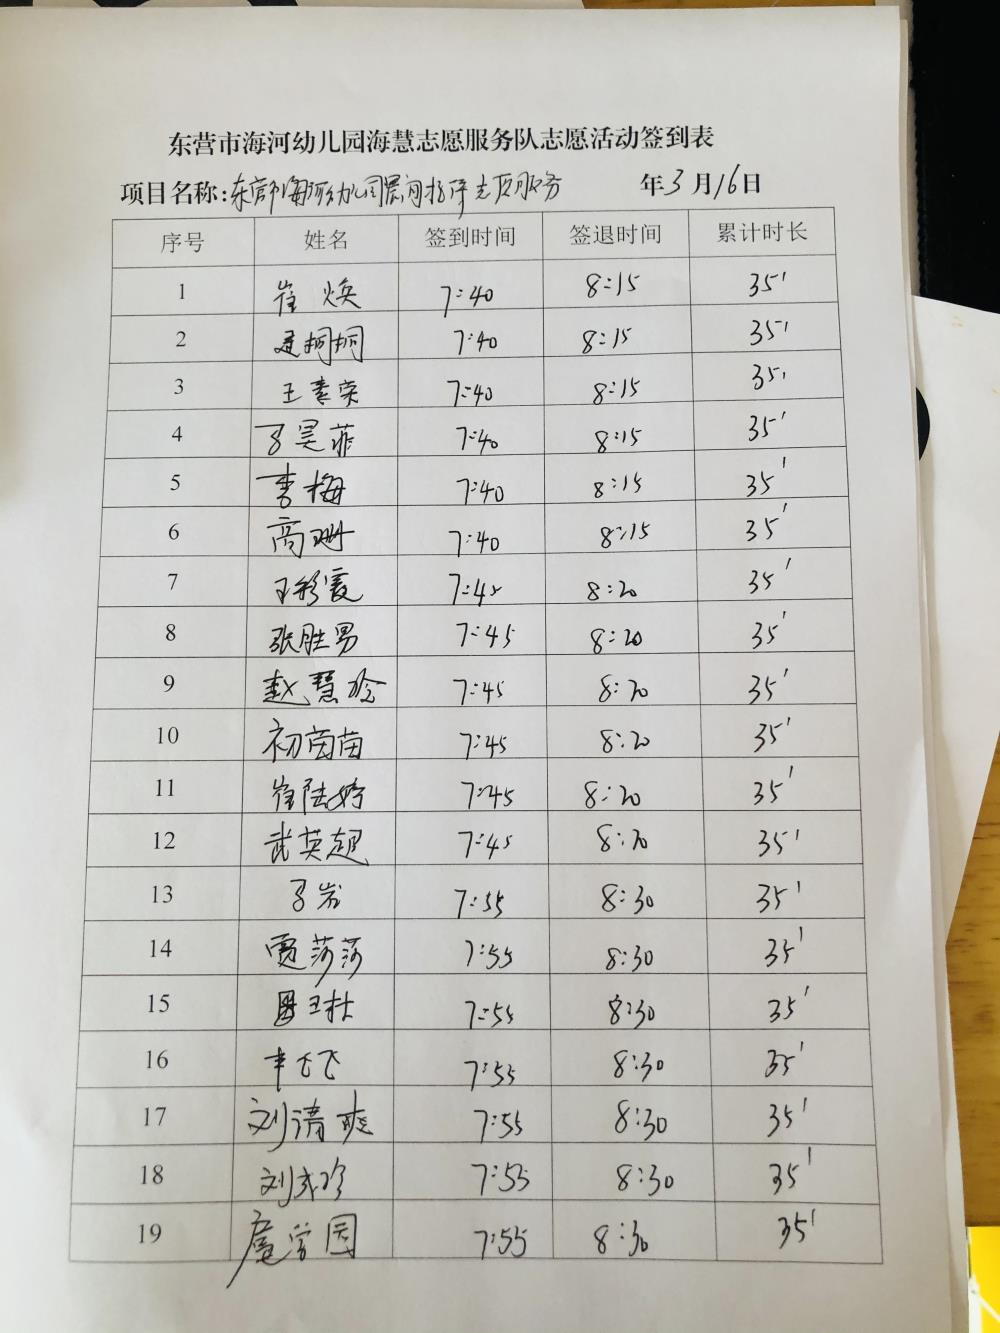 东营市海河幼儿园海慧志愿服务队志愿活动签到表
项目名称:东营市海河幼儿园晨间指挥志愿服务 年3月16日
序号 姓名 签到时间 签退时间 累计时长
1 崔焕 7:40 8:15 35'
2 桐桐 7:40 8:15 35'
3 王素荣 7:40 8:15 35'
4 昊菲 7:40 8:15 35'
5 李梅 7:40 8:15 35'
6 高珊 7:40 8:15 35'
7 王彩霞 7:45 8:20 35'
8 张胜男 7:45 8:20 35'
9 赵慧玲 7:45 8:20 35'
10 初茵苗 7:45 8:20 35'
11 崔陆婷 7:45 8:20 35'
12 武英超 7:45 8:20 35'
13 7:55 8:30 35'
14 贾莎莎 7:55 8:30 35'
15 7:55 8:30 35'
16 飞飞 7:55 8:30 35'
17 刘清爽 7:55 8:30 35'
18 刘珍 7:55 8:30 35'
19 7:55 8:30 35'